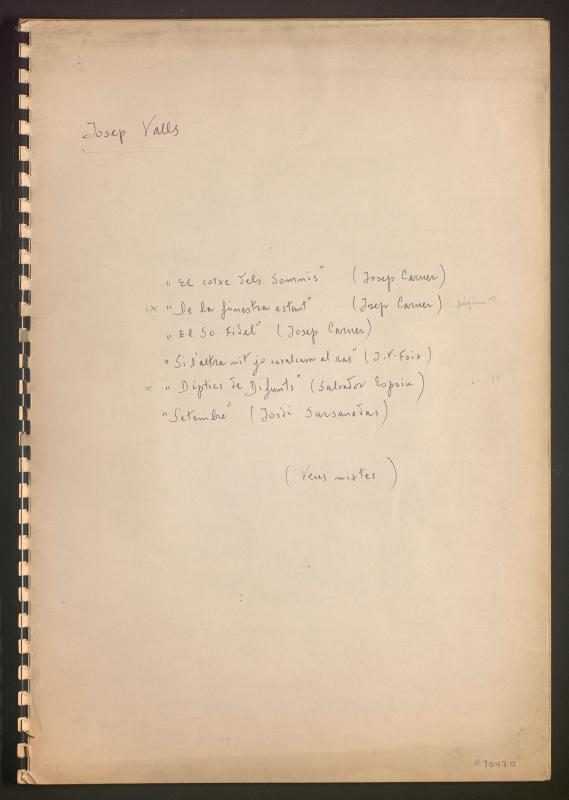 Josep Valls
"El cotxe dels Somnis" (Josep Carner)
x "De la finestra estant" (Josep Carner) pàgina 9
"El So Fidel" (Josep Carner)
"Si l'altra nit jo cavalcava al ras" (J.V. Foix)
x "Díptics de Difunts" (Salvador Espriu)
"Setembre" (Jordi Sarsanedas)
(Veus mixtes)
A 10470